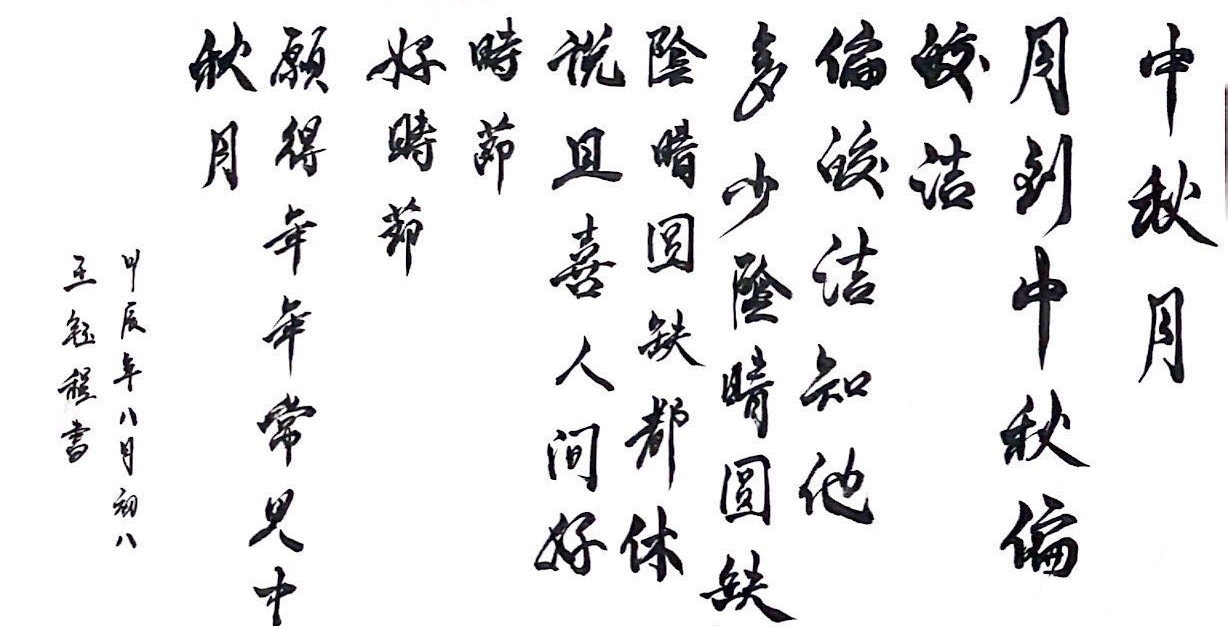 中秋月
月到中秋偏
皎洁
偏皎洁知他
多少陰晴圆缺
陰晴圆缺都休
说且喜人间好
時節
好時節
願得年年常見中
秋月
甲辰年八月初八
王鈺程書